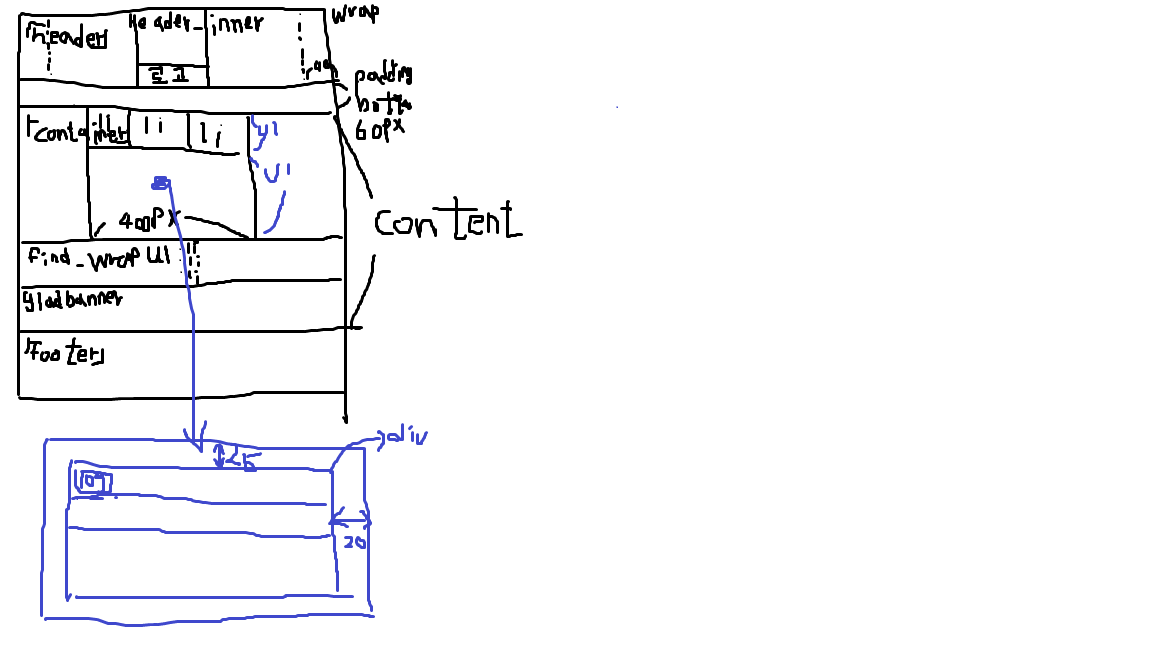 wrap
header
Header_inner
로고
padding
bottom
60px
container
inner
li
li
ul
ul
400PX
content
find_wrap Ul
gladbanner
footer
div
25
20